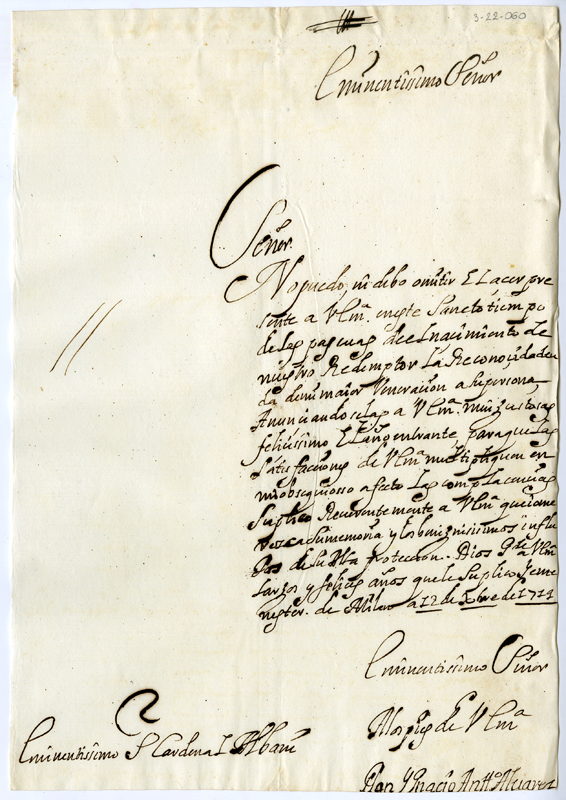 3-22-060
Eminentissimo Señor
Señor
No puedo, ni debo omitir El acer pre
sente a V Em.ª en este Sancto tiempo
de las pascuas de el nacimiento de
nuestro Redemptor La Reconoçida deu
da de mi maior Veneracion a su persona
Anunciandoselas a V Em.ª mui gustosas
felicissimo El año entrante para que Las
Satisfacciones de V Em.ª multipliquen en
mi obsequiosso afecto Las complacencias
Suplico Reverentemente a V Em.ª que
su memoria y los benignissimos influ
xos de su Alta proteccion. Dios g.de a V Em.ª
Largos y felices años que le Suplico, y e me
nester. de Milan a 12 de Xbre de 1714
Eminentissimo Señor
A los pies de V Em.ª
Eminentissimo S.r Cardenal Albani
Don Ygnacio Antt.o Alvarez